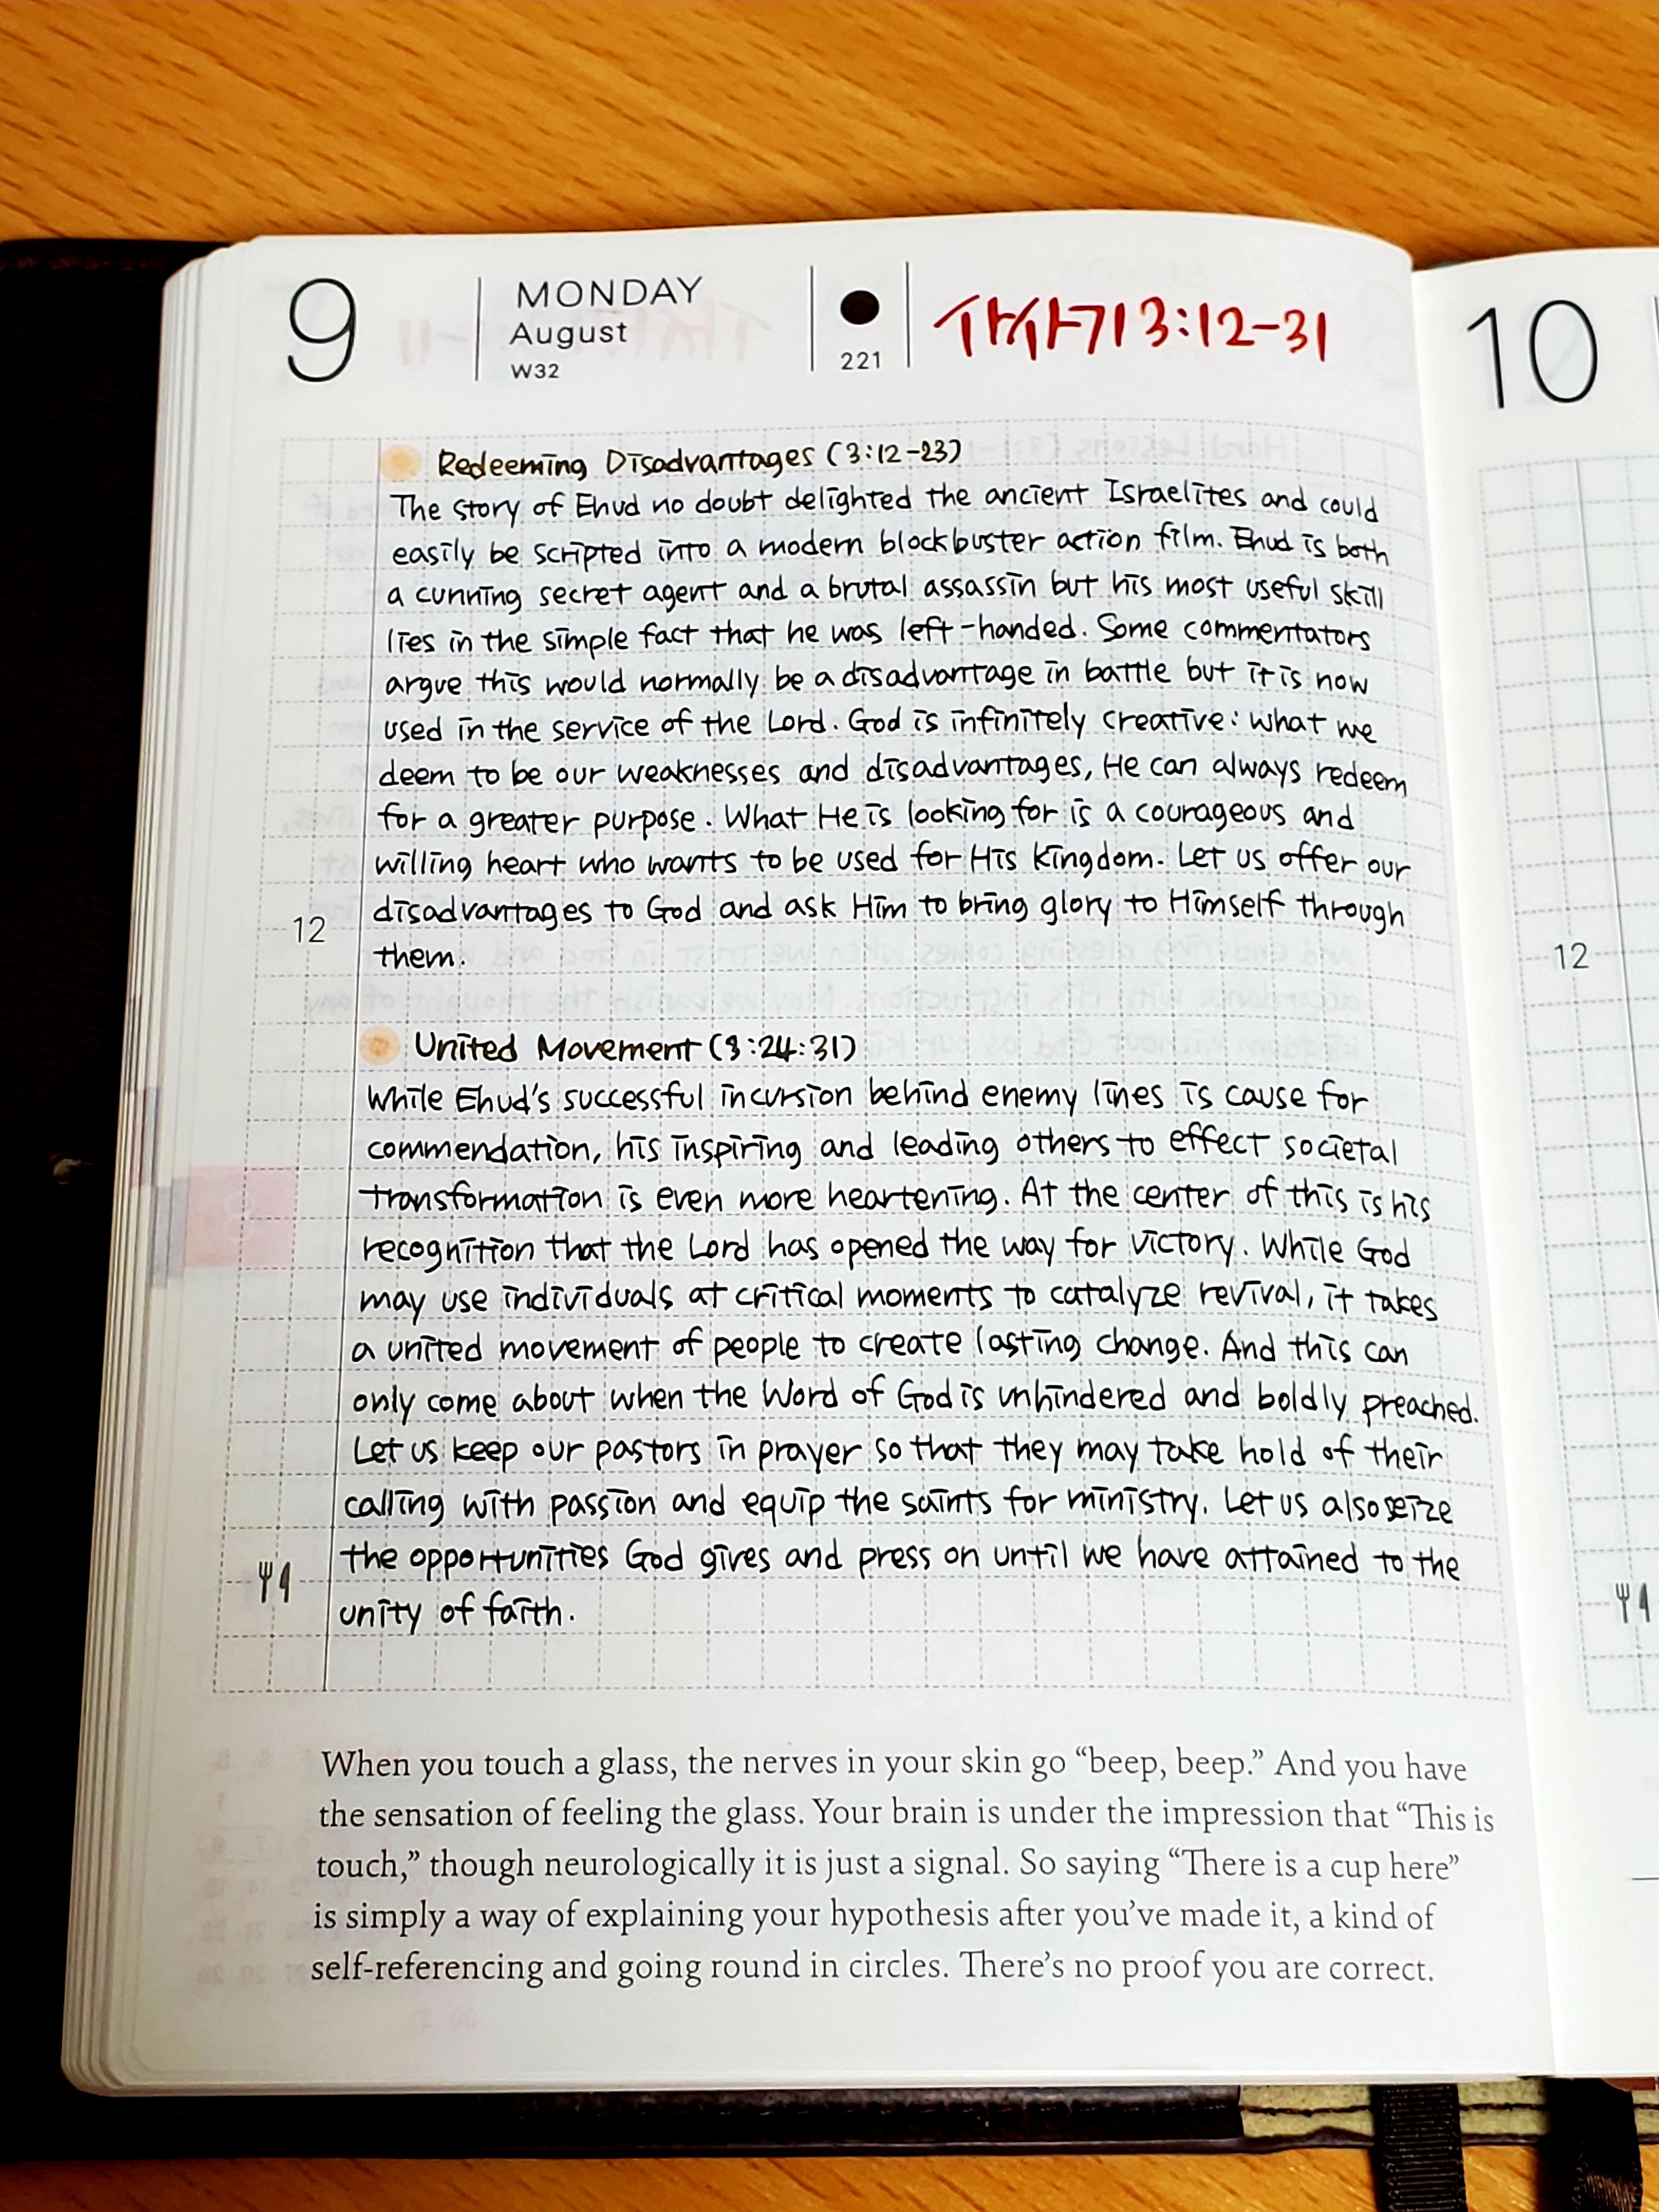 9
MONDAY
August
W32
221
사사기 3:12-31
10
Redeeming Disadvantages (3:12-23)
The story of Ehud no doubt delighted the ancient Israelites and could
easily be scripted into a modern blockbuster action film. Ehud is both
a cunning secret agent and a brutal assassin but his most useful skill
lies in the simple fact that he was left-handed. Some commentators
argue this would normally be a disadvantage in battle but it is now
used in the service of the Lord. God is infinitely creative: what we
deem to be our weaknesses and disadvantages, He can always redeem
for a greater purpose. What He is looking for is a courageous and
willing heart who wants to be used for His kingdom. Let us offer our
12
disadvantages to God and ask Him to bring glory to Himself through
12
them.
United Movement (3:24:31)
While Ehud's successful incursion behind enemy lines is cause for
commendation, his inspiring and leading others to effect societal
transformation is even more heartening. At the center of this is his
recognition that the Lord has opened the way for victory. While God
may use individuals at critical moments to catalyze revival, it takes
a united movement of people to create lasting change. And this can
only come about when the Word of God is unhindered and boldly preached.
Let us keep our pastors in prayer so that they may take hold of their
calling with passion and equip the saints for ministry. Let us also seize
the opportunities God gives and press on until we have attained to the
unity of faith.
When you touch a glass, the nerves in your skin go “beep, beep.” And you have
the sensation of feeling the glass. Your brain is under the impression that “This is
touch,” though neurologically it is just a signal. So saying “There is a cup here”
is simply a way of explaining your hypothesis after you’ve made it, a kind of
self-referencing and going round in circles. There’s no proof you are correct.